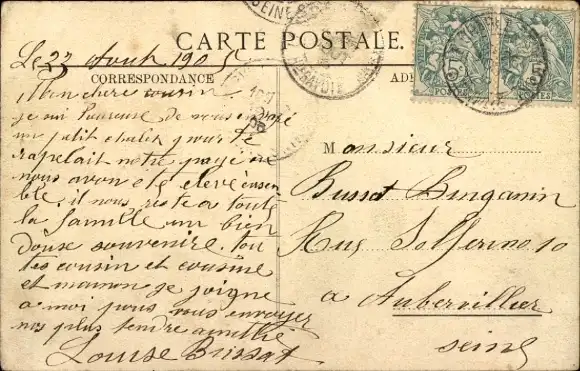 CARTE POSTALE.
CORRESPONDANCE
Le 22 Aouh 1905
Mon cher cousin
je sui heureuse de vous
un petit chalet pour
rapelait notre paye
nous avon été elevé ensem
ble, il nous reste a toute
la famille un bien
douse souvenire. tou
tes cousin et cousine
et maman se joigne
a moi pour vous envoyer
nos plus tendre amitié
Louise Bussat
Monsieur
Bussat Benjamin
Rue Solferino 10
a Aubervillier
seine